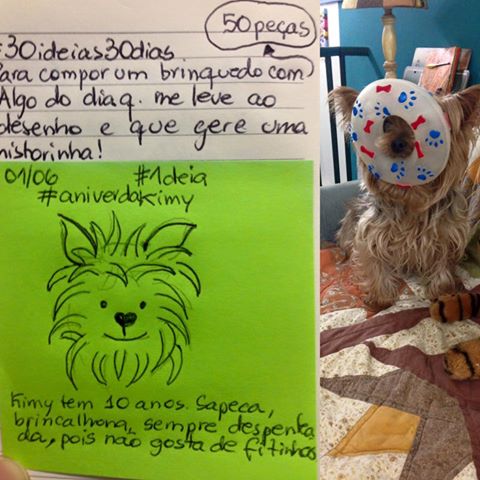 50 peças
#30ideias30dias
Para compor um brinquedo com
Algo do dia q. me leve ao
desenho e que gere uma
historinha!
01/06 #1deia
#aniverdakimy
Kimy tem 10 anos. Sapeca,
brincalhona, sempre despentea
da, pois não gosta de fitinhas